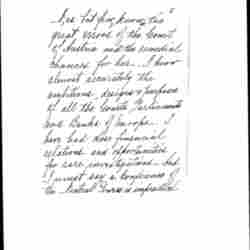 great errors of the Court
of Austria and the remedial
chances for her. I know
almost accurately the
ambitions, designs & purposes
of all the Courts Parliaments
and Banks of Europe. I
have had near financial
relations and opportunities
for rare investigations. And
I must say a conference of
the Neutral Powers is imperative